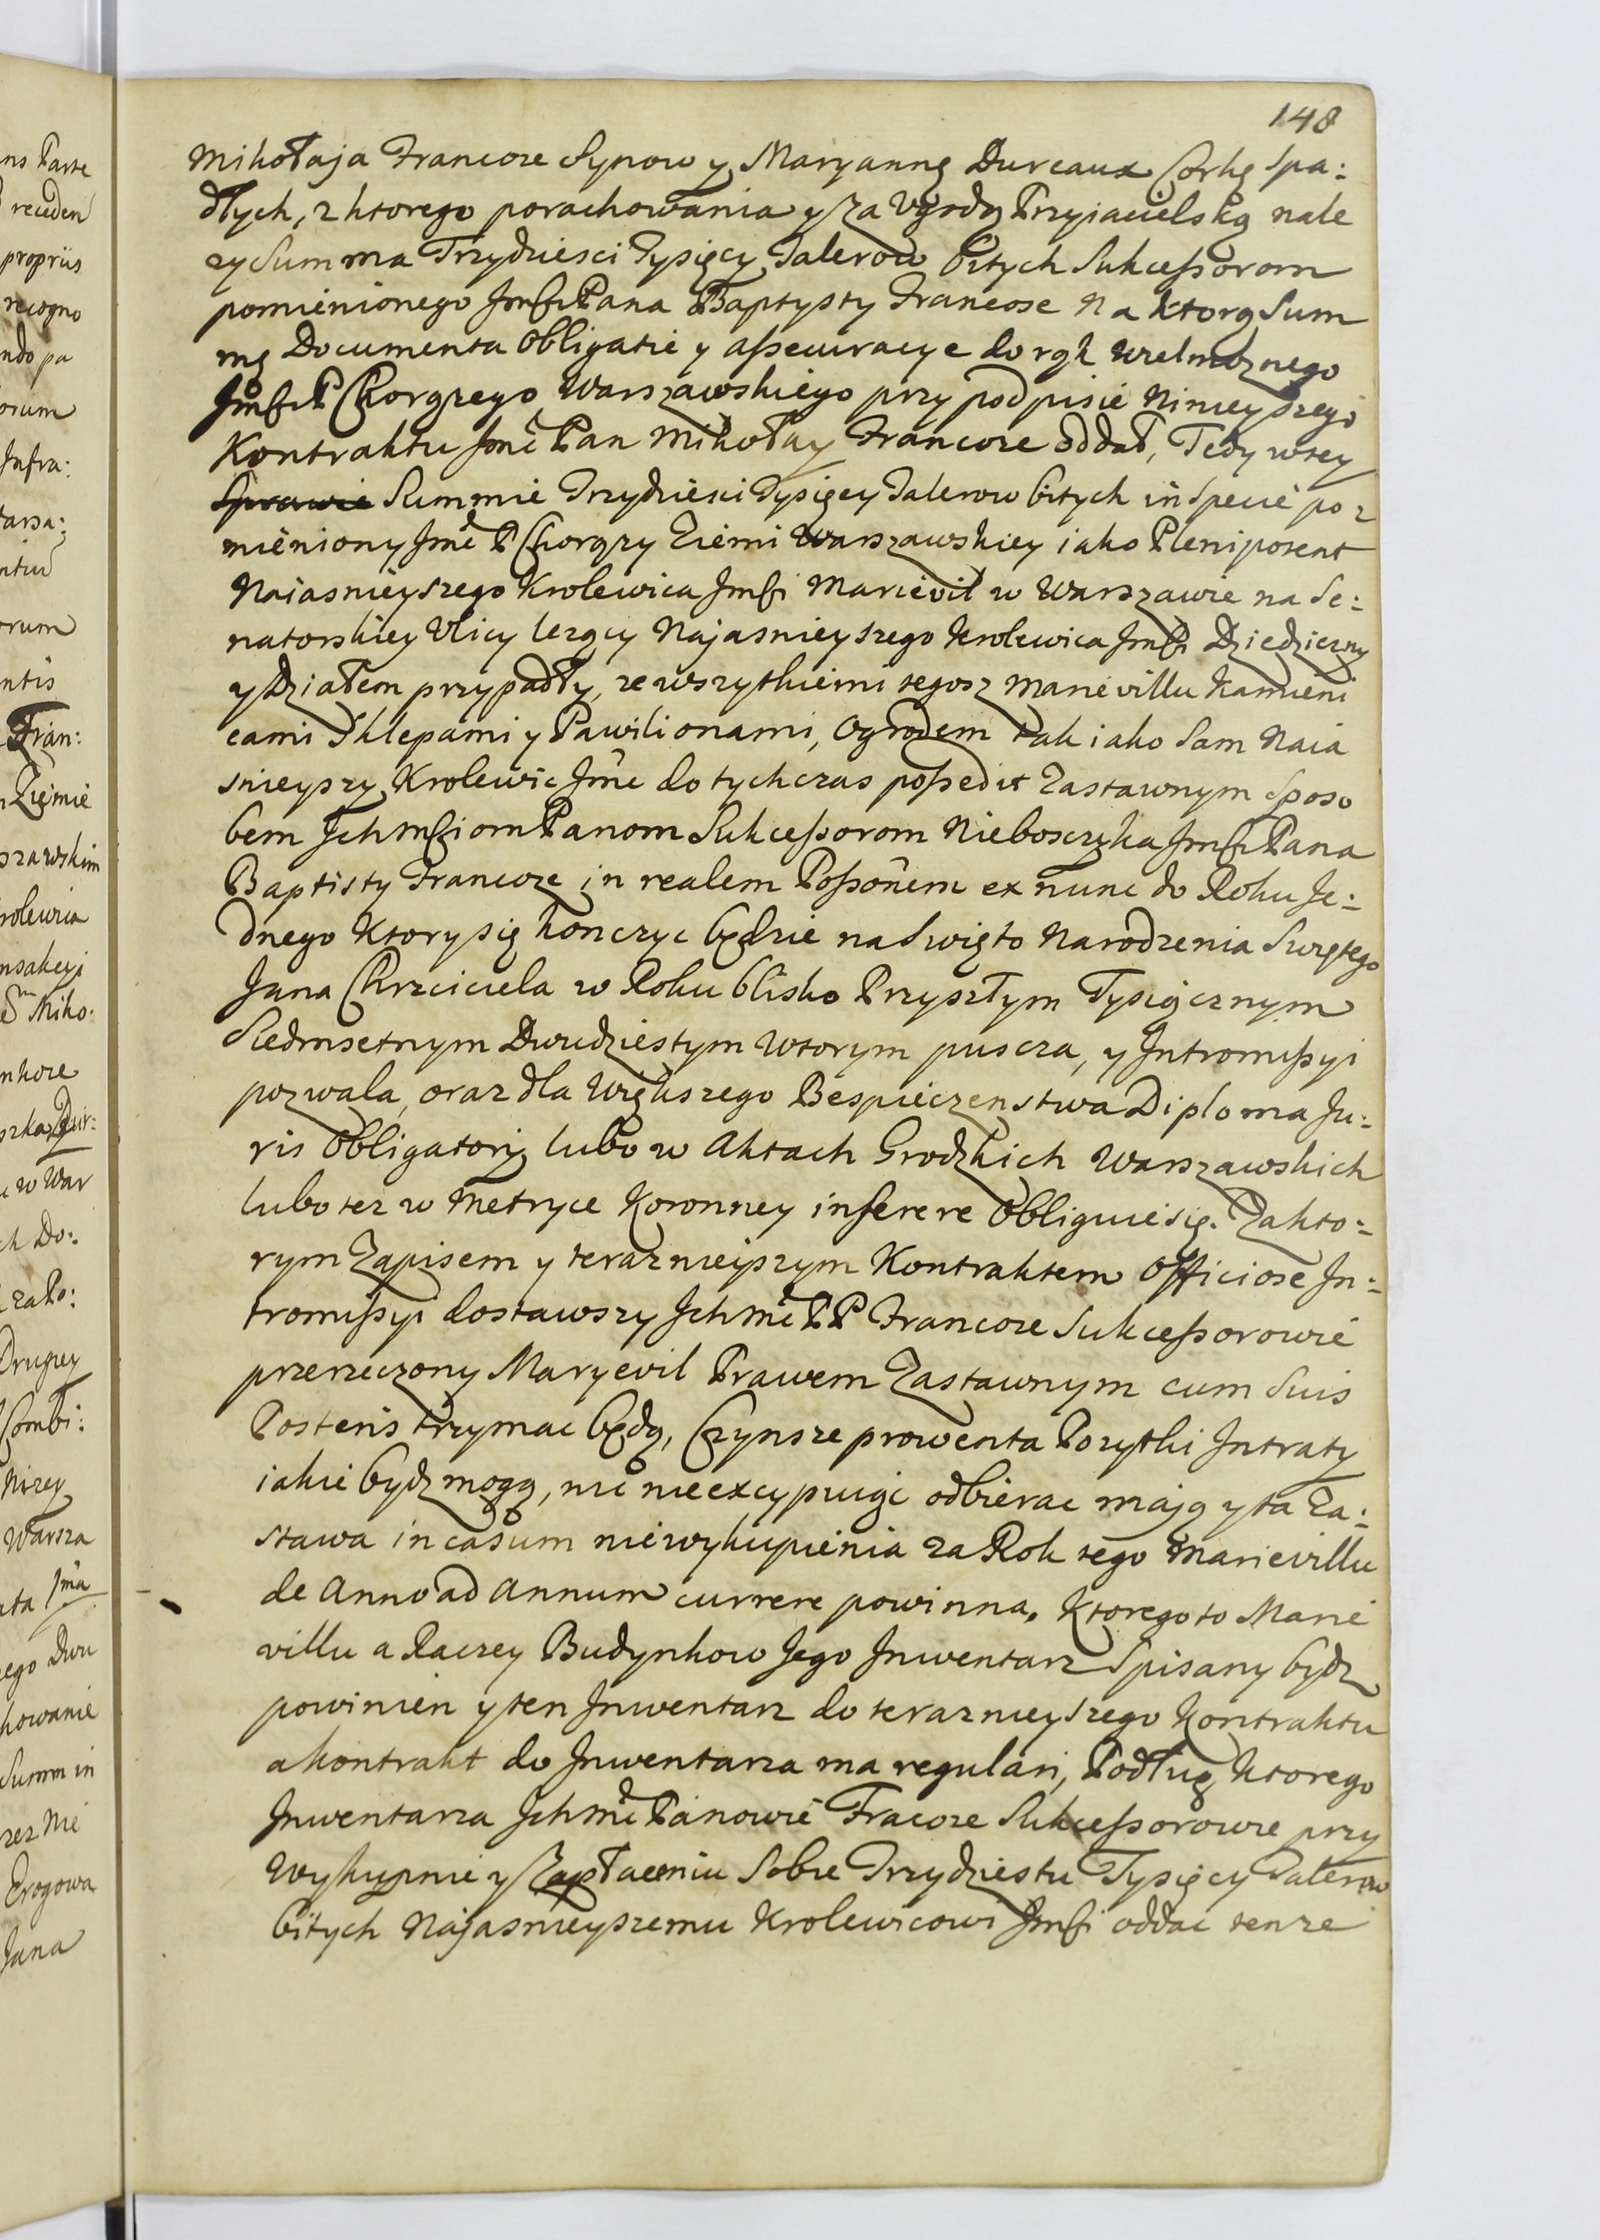 148
Mikołaja Francoze Synow y Maryannę Dureaux Corkę Spa:
dłych, z ktorego porachowania y za Ugodą Przyiacielską nale
zy Summa Trzydziesci Tysięcy Talerow bitych Sukceſsorom
pomienionego Jmści Pana Baptysty Francose Na ktorą Sum
mę Documenta Obligatie y aſsecuracye do rąk Wielmoznego
Jmści P Chorązego Warszawskiego przy podpisie Ninieyszego
Kontraktu Jmć Pan Mikołay Francoze oddał, Tedy w tey
Sprawie Summie Trzydziesci Tysięcy Talerow bitych in Specie po:
mieniony Jmć P Chorązy Ziemi Warszawskiey iako Plenipotent
Naiasnieyszego Krolewica Jmści Marievil w Warszawie na Se:
natorskiey Ulicy lezący Najasnieyszego Krolewica Jmści Dziedziczny
y Działem przypadły, ze wszytkiemi tegosz Marievillu Kamieni
cami Sklepami y Pawilionami, Ogrodem tak iako Sam Naia
snieyszy Krolewic Jmć do tychczas poſsedit Zastawnym Sposo
bem Ichmściom Panom Sukceſsorom Nieboszczyka Jmści Pana
Baptisty Francoze in realem Poſsonem ex nunc do Roku Je:
dnego ktory się konczyc będzie na Swięto Narodzenia Swętego
Jana Chrzciciela w Roku blisko Przyszłym Tysiącznym
Siedmsetnym Dwudziestym Wtorym puscza, y Intromiſsyi
pozwala, oraz dla Większego Bespieczenstwa Diploma Ju:
ris Obligatorij lubo w Aktach Grodzkich Warszawskich
lubo tez w Metryce Koronney inserere Obliguie się. Za kto:
rym Zapisem y terazniejszym Kontraktem Officiose In:
tromiſsyi dostawszy Ichmć PP Francoze Sukceſsorowie
przerzeczony Maryevil Prawem Zastawnym cum Suis
Posteris trzymac będą, Czynsze prowenta Pozytki Intraty
iakie bydz mogą, nic nie excypuiąc odbierac mają y ta Za:
stawa in casum niewykupienia za Rok tego Marievillu
de Anno ad Annum currere powinna. Ktorego to Marie
villu a Raczey Budynkow Jego Inwentarz Spisany bydz
powinien y ten Inwentarz do teraznieyszego Kontraktu
a kontrakt do Inwentarza ma regulari, Podług ktorego
Inwentarza Ichmć Panowie Fracoze Sukceſsorowie przy
Wykupnie y Zapłaceniu Sobie Trzydziestu Tysięcy Talerow
bitych Najasnieyszemu Krolewicowi Jmści oddac tenze